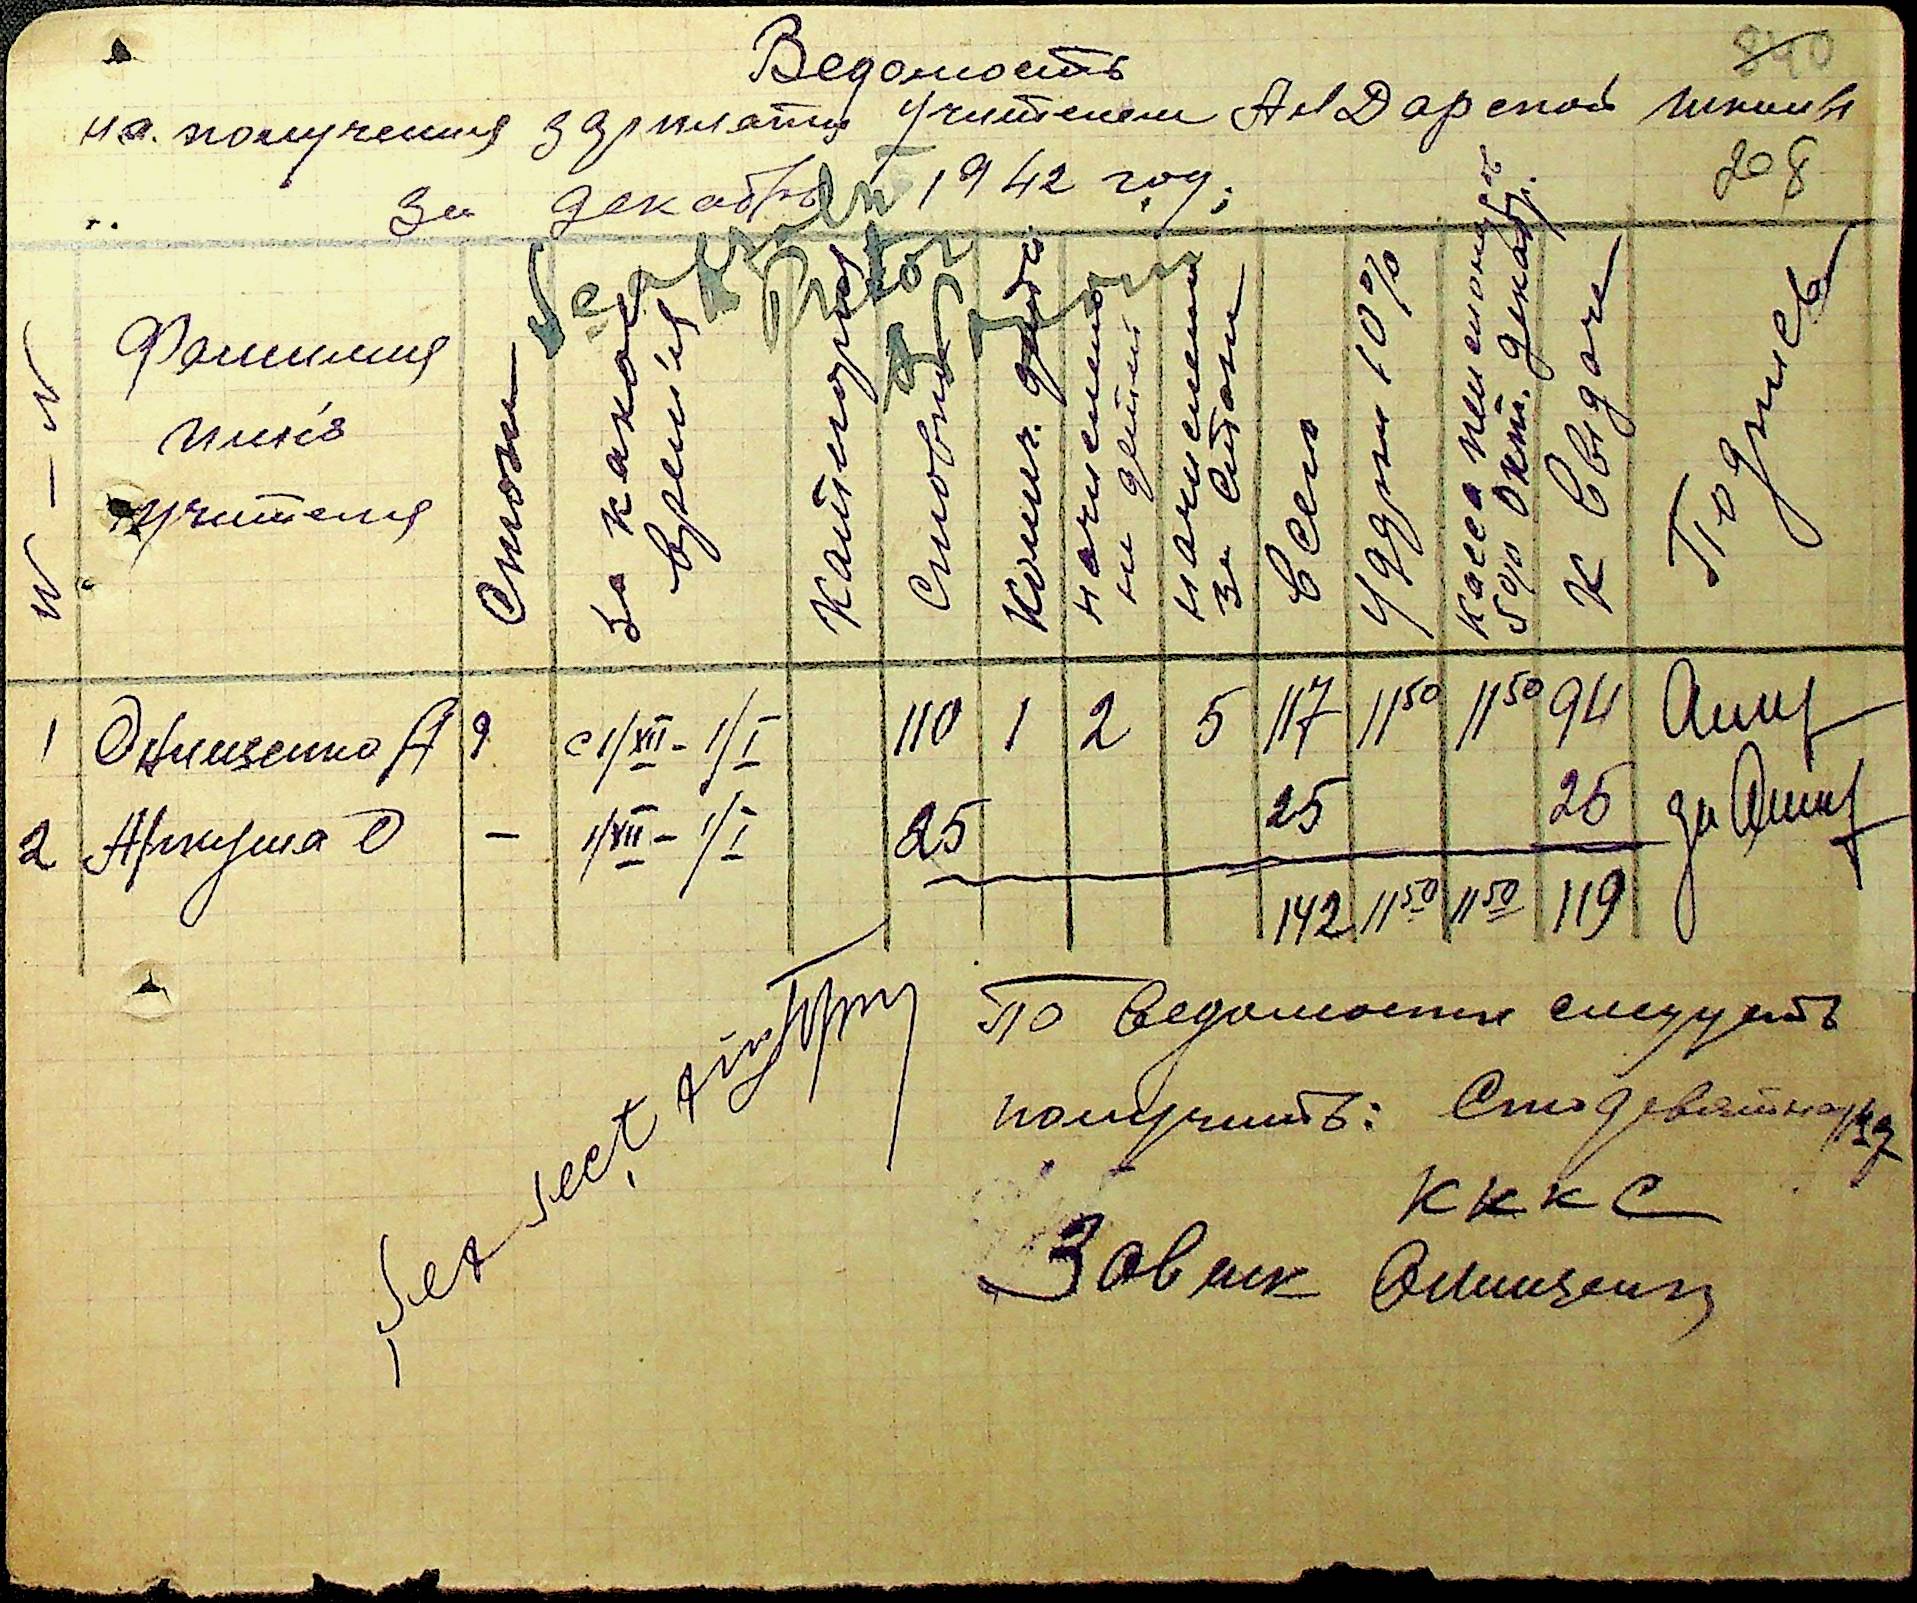 840
Ведомость
на получения зарплаты учителем Ан Дарской школы
208
за декабрь 1942 году:
N – N
Фамилия
имя
учителя
Стаж
За какое
время
Категория
Ставка
Колич. детей
начислено
на детей
начислено
за стаж
Всего
Удерж 10%
5% Окт. Декабр.
К выдаче
Подпись
1 Онищенко А 9 с 1/XII – 1/I 110 1 2 5 117 11 50 11 50 94
2 Аркуша О – 1/XII – 1/I 25 25 25 за
142 11 50 11 50 119
По ведомости следуеть
получить: Сто девятнадц
КККС
Завшк Онищенко